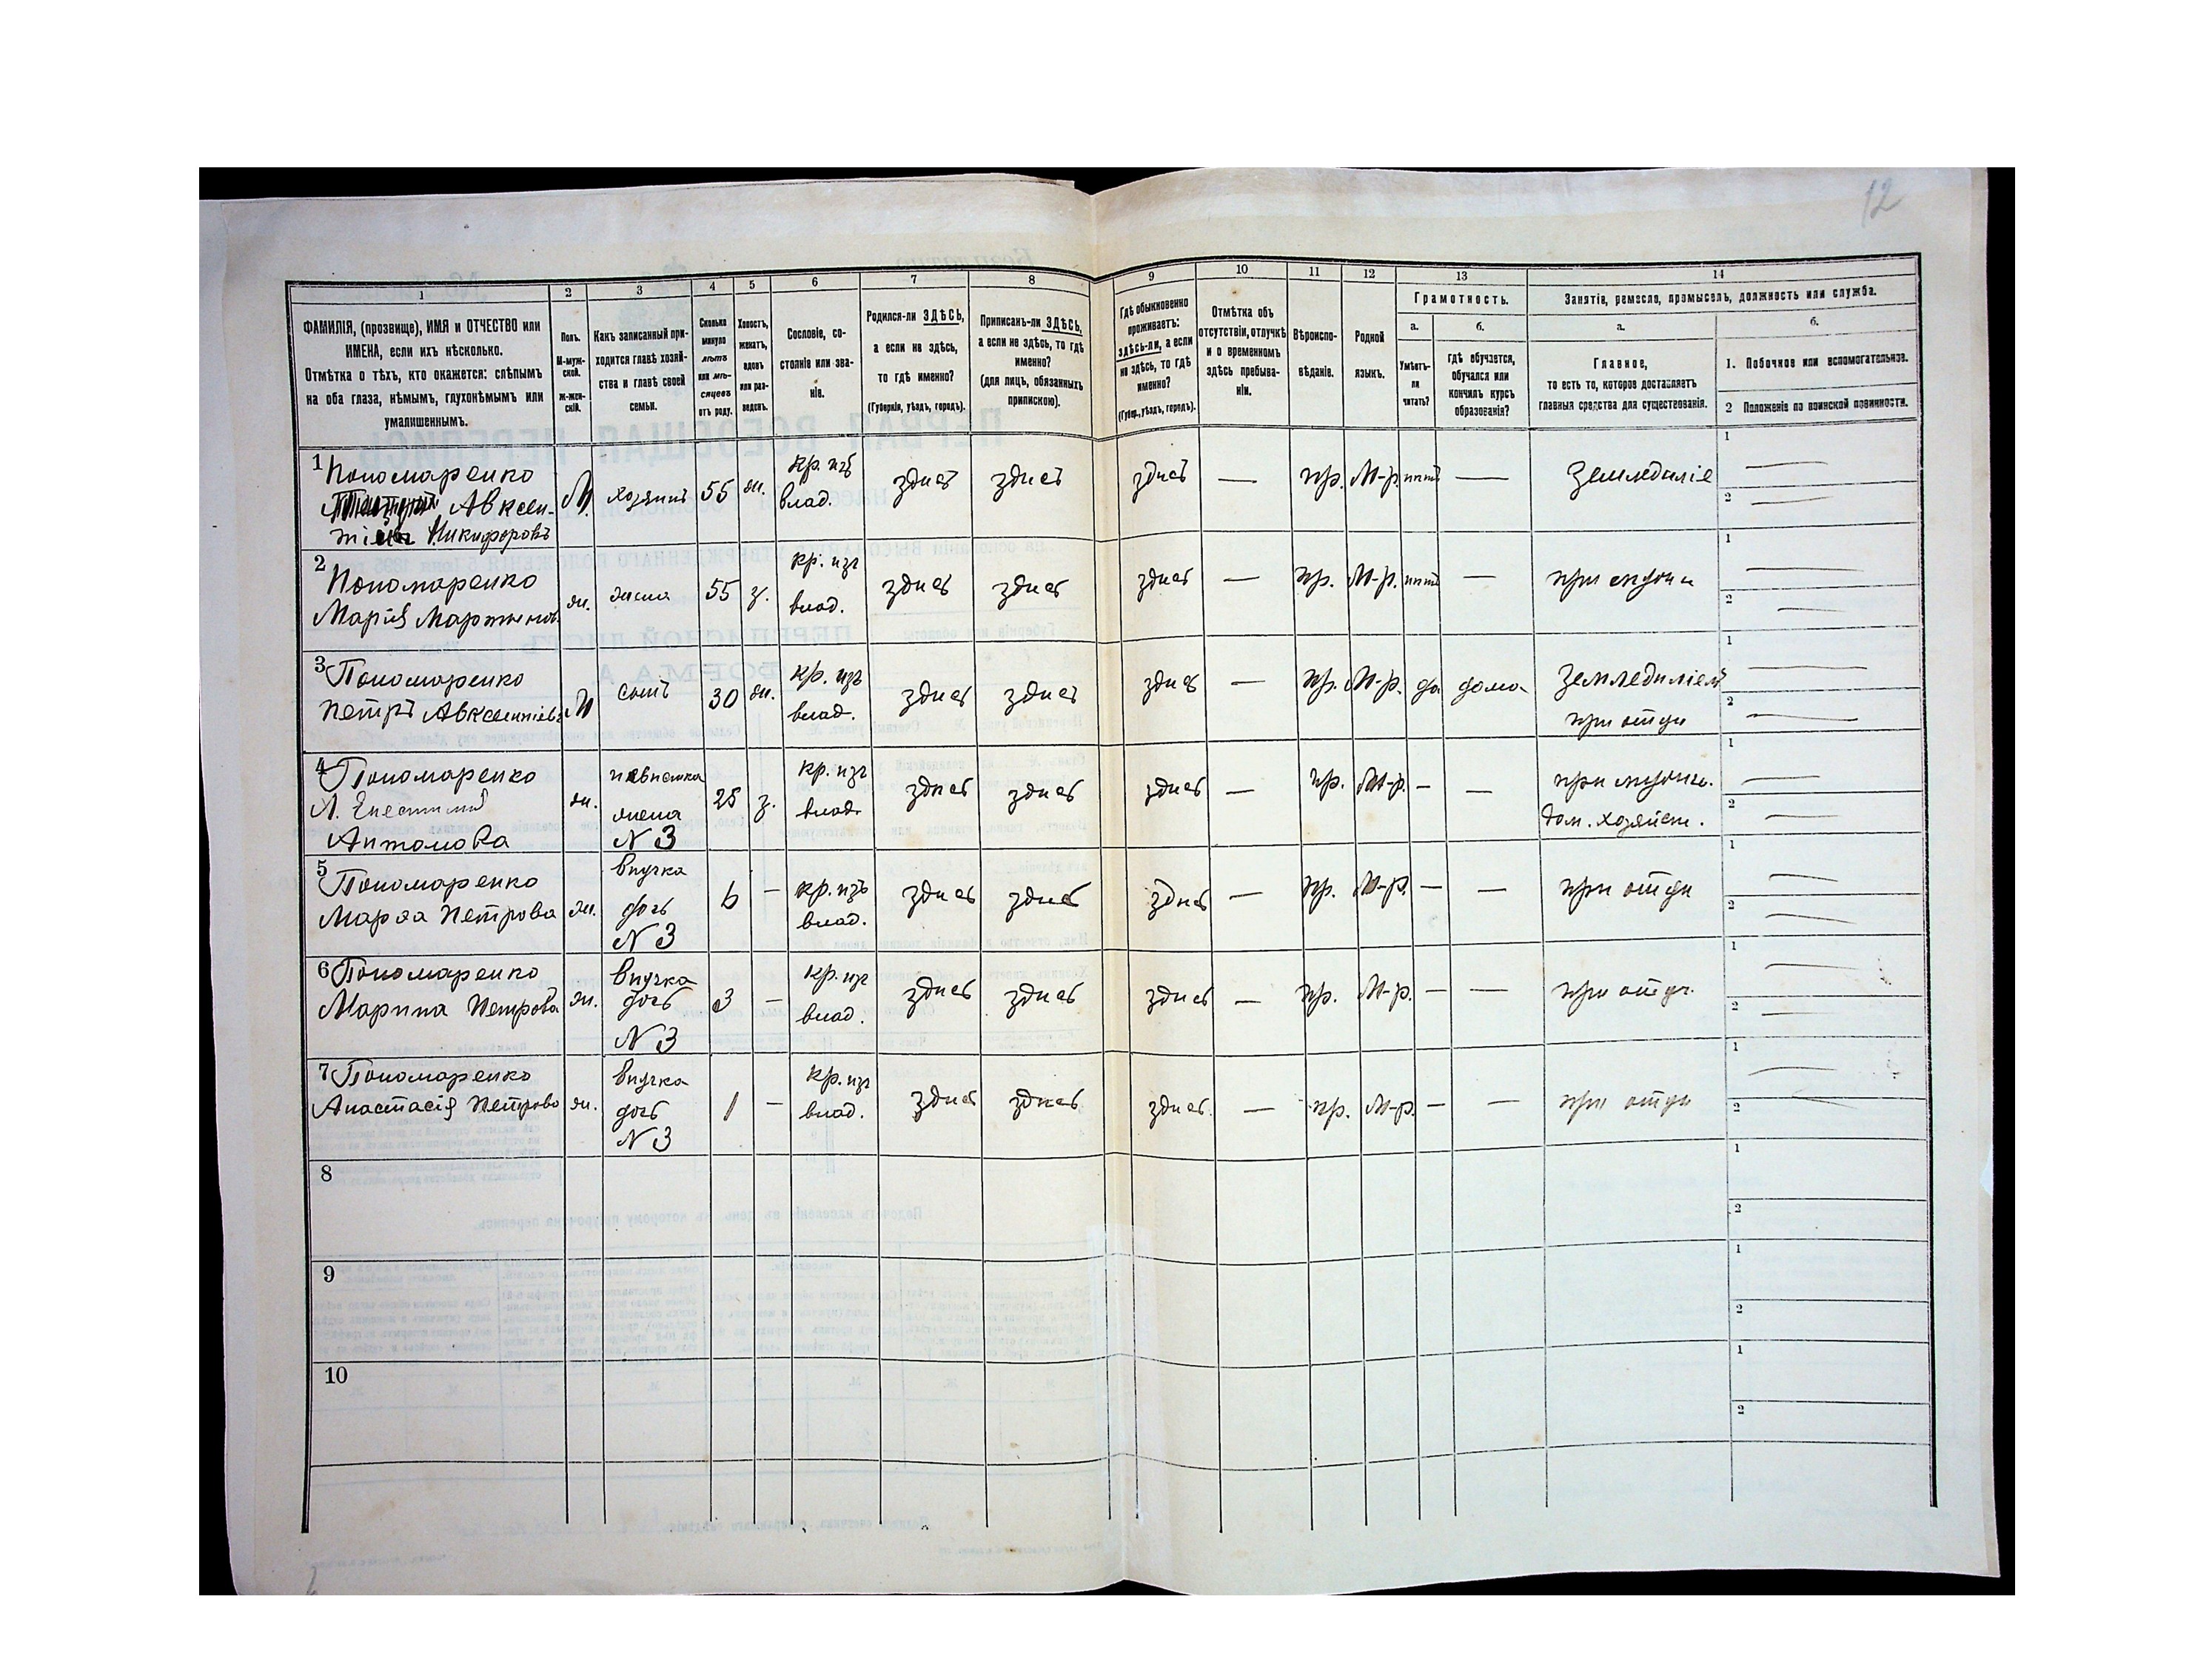 12
1
2
3
4
5
6
7
8
9
10
11
12
13
14
ФАМИЛІЯ, (прозвище), ИМЯ и ОТЧЕСТВО или
ИМЕНА, если ихъ нѣсколько.
Отмѣтка о тѣхъ, кто окажется: слѣпымъ
на оба глаза, нѣмымъ, глухонѣмымъ или
умалишеннымъ.
Полъ.
М-муж-
ской.
ж-жен-
скій.
Какъ записанный при-
ходится главѣ хозяй-
ства и главѣ своей
семьи.
Сколько
минуло
лѣтъ
или мѣ-
сяцевъ
отъ роду.
Холостъ,
женатъ,
вдовъ
или раз-
веденъ.
Сословіе, со-
стояніе или зва-
ніе.
Родился-ли ЗДѢСЬ,
а если не здѣсь,
то гдѣ именно?
(Губернія, уѣздъ, городъ).
Приписанъ-ли ЗДѢСЬ,
а если не здѣсь, то гдѣ
именно?
(для лицъ, обязанныхъ
припискою).
Гдѣ обыкновенно
проживаетъ:
здѣсь-ли, а если
не здѣсь, то гдѣ
именно?
(Губер., уѣздъ, городъ).
Отмѣтка объ
отсутствіи, отлучкѣ
и о временномъ
здѣсь пребыва-
ніи.
Вѣроиспо-
вѣданіе.
Родной
языкъ.
Грамотность.
а.
Умѣетъ-
ли
читать?
б.
гдѣ обучается,
обучался или
кончилъ курсъ
образованія?
Занятія, ремесло, промыселъ, должность или служба.
а.
Главное,
то есть то, которое доставляетъ
главныя средства для существованія.
б.
1. Побочное или вспомогательное.
2 Положеніе по воинской повинности.
1 Пономаренко
Авксен-
тій Никифоровъ
М. хозяинъ 55 ж. кр. изъ
влад. здѣсь здѣсь здѣсь — пр. М-р. нѣтъ — Земледѣліе
1 —
2 —
2 Пономаренко
Марія Мартинова
ж. жена 55 з. кр. изъ
влад. здѣсь здѣсь здѣсь — пр. М-р. нѣтъ — при мужѣ
1 —
2 —
3 Пономаренко
Петръ Авксентіевъ
М сынъ 30 ж. кр. изъ
влад. здѣсь здѣсь здѣсь — пр. М-р. да дома Земледѣліемъ
при отцѣ
1 —
2 —
4 Пономаренко
Антонова
ж. невѣстка
жена
N 3
25 з. кр. изъ
влад. здѣсь здѣсь здѣсь — пр. М-р. — — при мужѣ.
дом. хозяйст.
1 —
2 —
5 Пономаренко
Марѳа Петрова
ж. внучка
дочь
N 3
6 — кр. изъ
влад. здѣсь здѣсь здѣсь — пр. М-р. — — при отцѣ
1 —
2 —
6 Пономаренко
Марина Петрова
ж. внучка
дочь
N 3
3 — кр. изъ
влад. здѣсь здѣсь здѣсь — пр. М-р. — — при отцѣ.
1 —
2 —
7 Пономаренко
Анастасія Петрова
ж. внучка
дочь
N 3
1 — кр. изъ
влад. здѣсь здѣсь здѣсь — пр. М-р. — — при отцѣ
1 —
2 —
8
1
2
9
1
2
10
1
2